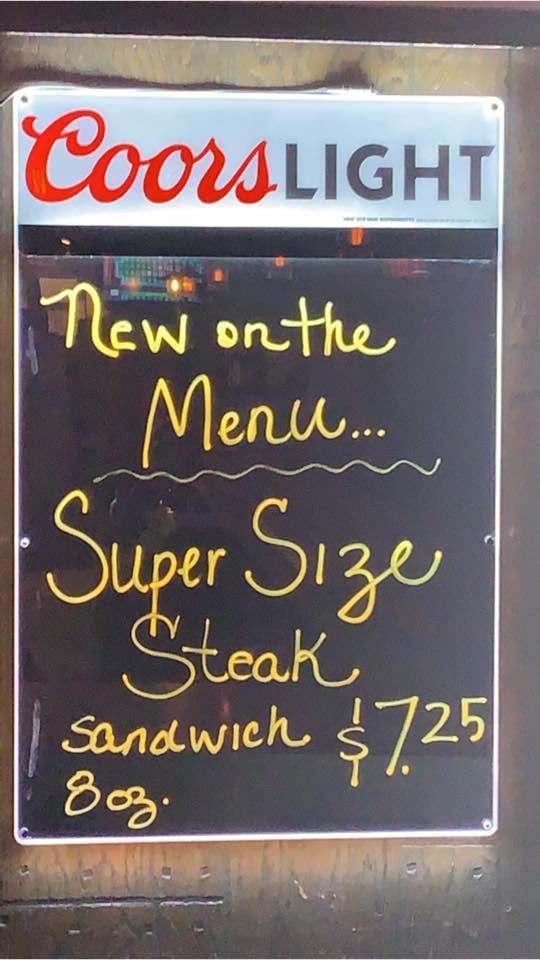 Coors LIGHT
New on the
Menu...
Super Size
Steak
sandwich $7.25
8 oz.